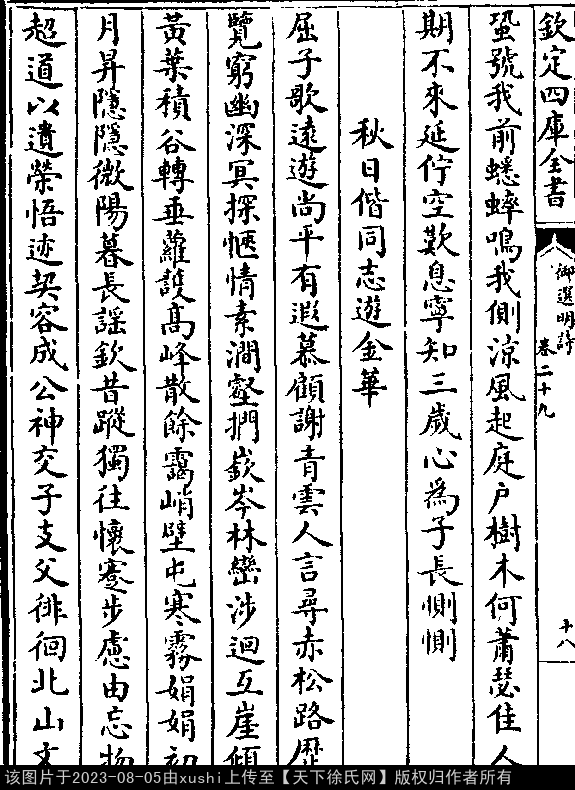 欽定四庫全書
御選明詩
卷二十九
十八
蛩號我前蟋蟀鳴我側涼風起庭戶樹木何蕭瑟佳人
期不來延佇空歎息寧知三歲心為子長惻惻
秋日偕同志遊金華
屈子歌遠遊尚平有遐慕顧謝青雲人言尋赤松路歴
覽窮幽深冥探愜情素澗壑捫嶔岑林巒涉迴互崖傾
黃葉積谷轉垂蘿護高峰散餘靄峭壁屯寒霧娟娟初
月昇隱隱微陽暮長謡欽昔蹤獨往懷蹇步慮由忘物
超道以遺榮悟迹契容成公神交子支父徘徊北山文
该图片于2023-08-05由xushi上传至【天下徐氏网】版权归作者所有